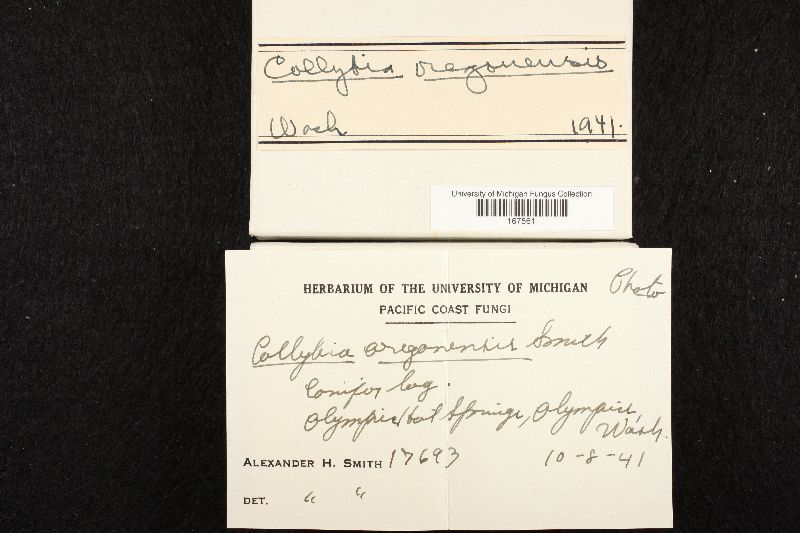 Collybia oregonensis
Wash 1941.
University of Michigan Fungus Collection
167561
HERBARIUM OF THE UNIVERSITY OF MICHIGAN Photo
PACIFIC COAST FUNGI
Collybia oregonensis Smith
Conifer log.
Olympic Hot Springs, Olympics,
Wash.
ALEXANDER H. SMITH 17693 10-8-41
DET. " "